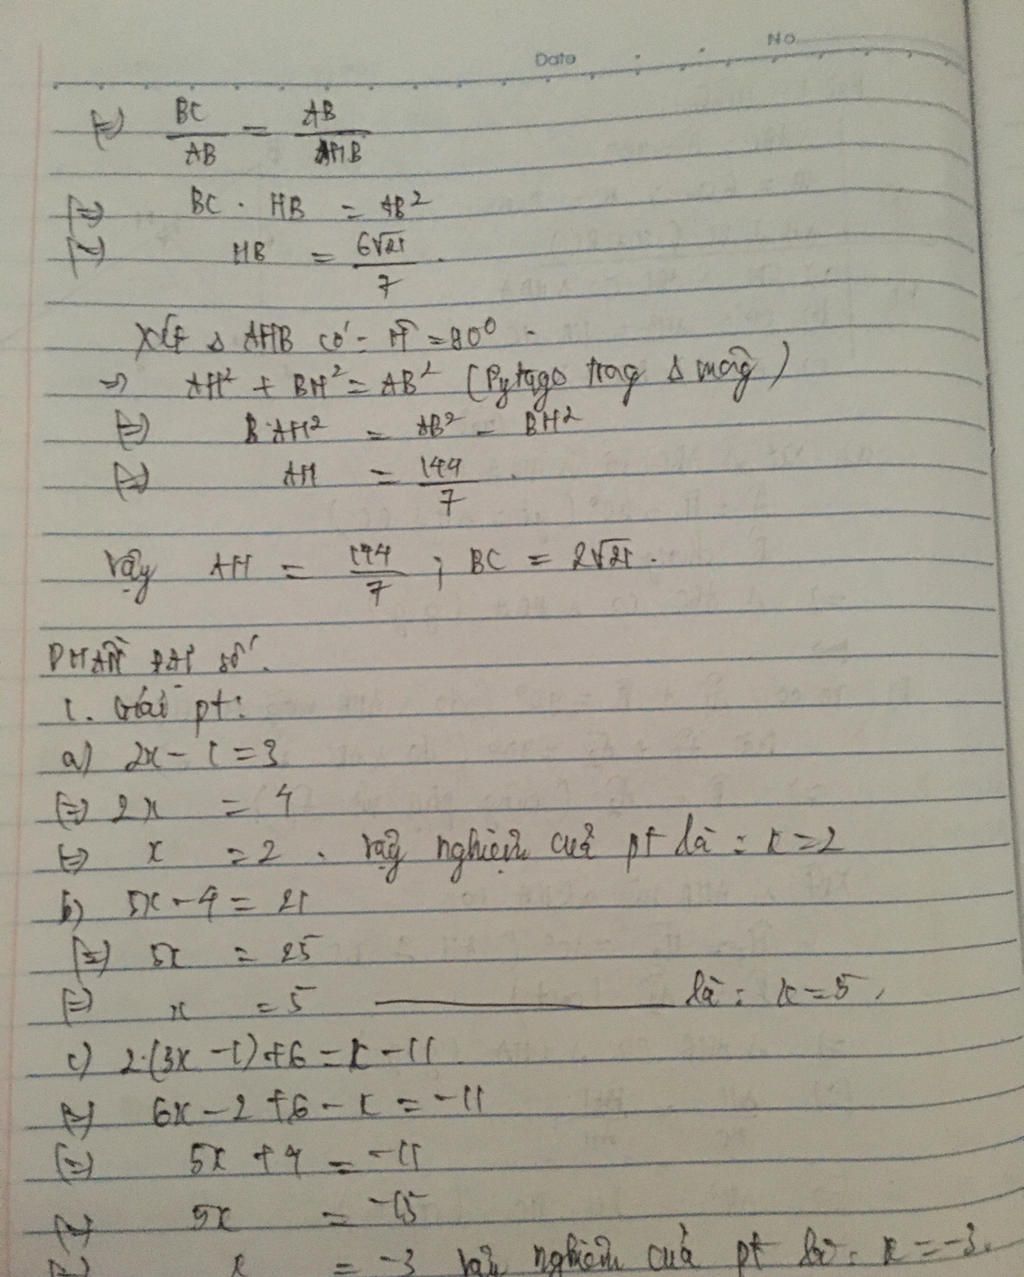 Date No
(=) BC/AB = AB/AHB
(=) BC . HB = AB²
(=) HB = 6√21/7 .
Xét Δ AHB có - Ĥ = 90⁰ -
=> AH² + BH² = AB² (Pytago trong Δ vuông)
(=) AH² = AB² - BH²
(=) AH = 144/7 .
Vậy AH = 144/7 ; BC = 2√21 .
PHẦN ĐẠI SỐ .
1. Giải pt :
a) 2x - 1 = 3
(=) 2x = 4
(=) x = 2 . Vậy nghiệm của pt là : x = 2
b) 5x - 4 = 21
(=) 5x = 25
(=) x = 5 ——— là : x = 5 .
c) 2.(3x - 1) + 6 = x - 11
(=) 6x - 2 + 6 - x = -11
(=) 5x + 4 = -11
(=) 5x = -15
(=) x = -3 Vậy nghiệm của pt là : x = -3 .